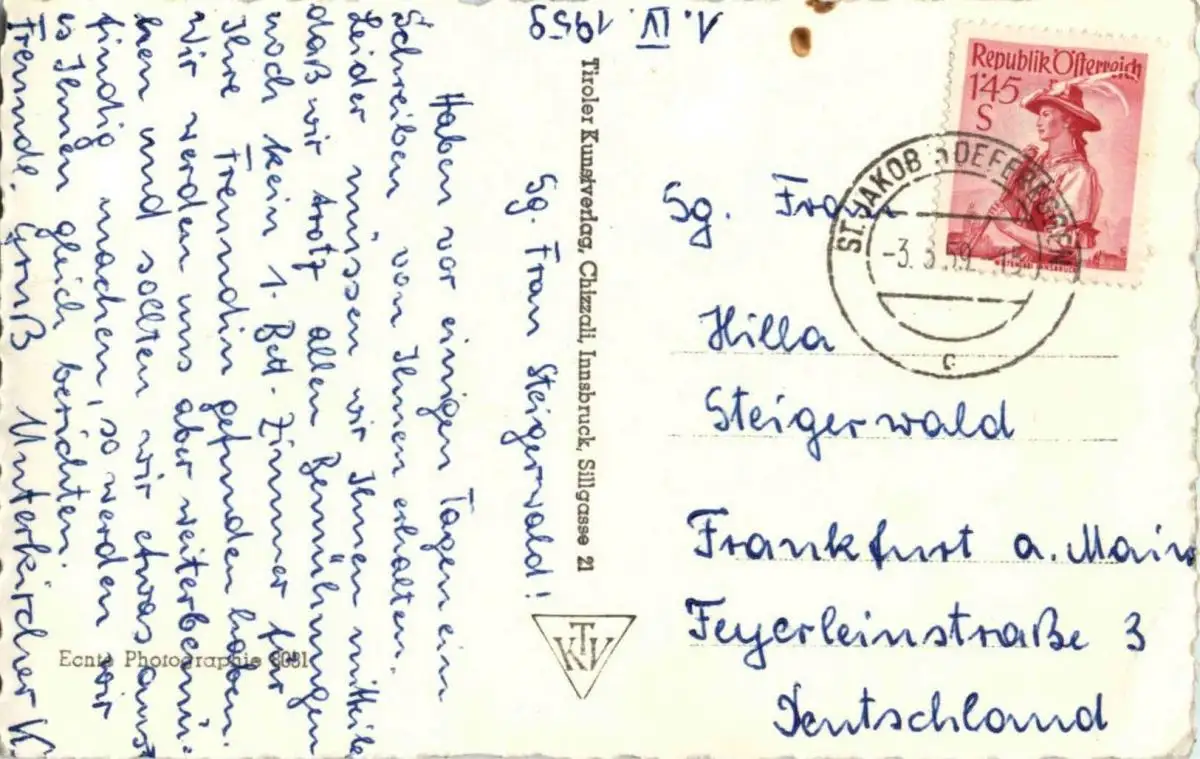 1. IV. 1959
Sg. Frau Steigerwald!
Haben vor einigen Tagen ein
Schreiben von Ihnen erhalten.
Leider müssen wir Ihnen mitteilen
daß wir trotz allen Bemühungen
noch kein 1. Bett-Zimmer für
Ihre Freundin gefunden haben.
Wir werden uns aber weiterbemü-
hen und sollten wir etwas aus-
findig machen, so werden wir
es Ihnen gleich berichten.
Freundl. Gruß Unterkircher K
Echte Photographie
Tiroler Kunstverlag, Chizzali, Innsbruck, Sillgasse 21
TKV
Republik Österreich
1·45
S
ST. JAKOB
-3. 59
c
Sg. Frau
Hilla
Steigerwald
Frankfurt a. Main
Feyerleinstraße 3
Deutschland